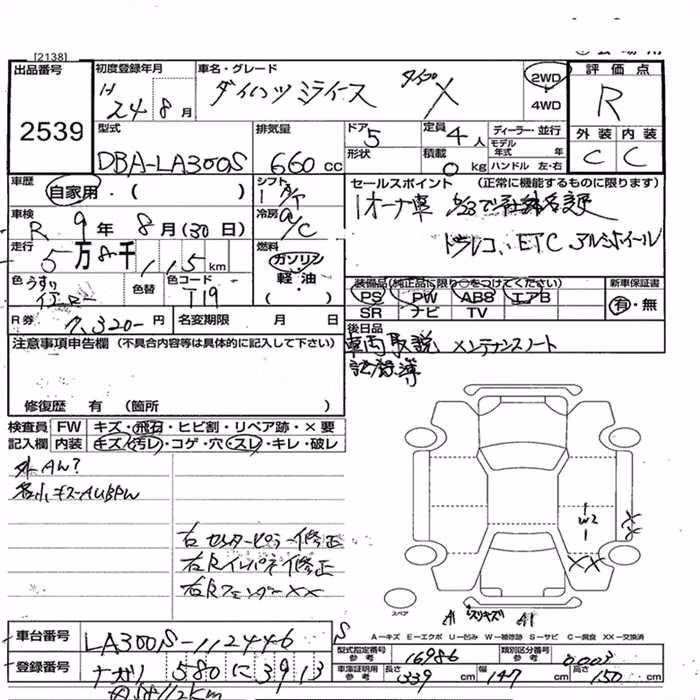 [2138]
出品番号
2539
初度登録年月
H 24年 8月
車名・グレード
ダイハツ ミライース X
2WD
4WD
評価点
R
外装 内装
C C
型式
DBA-LA300S
排気量
660 cc
ドア 5
形状
定員 4人
積載 0 kg
ディーラー・並行
モデル年式 年
ハンドル 左・右
車歴
自家用・( )
シフト
A/T
セールスポイント (正常に機能するものに限ります)
1オーナ車
ドラレコ、ETC、アルミホイール
車検
R 9年 8月(30日)
冷房
A/C
走行
5万8千115km
燃料
ガソリン
軽・油
( )
色
色替
色コード
T19
装備品(純正品に限り○をつけてください)
PS PW ABS エアB
SR ナビ TV
新車保証書
有・無
R券 7,320-円
名変期限 月 日
後日品
車両取説、メンテナンスノート
記録簿
注意事項申告欄 (不具合内容等は具体的に記入して下さい)
修復歴 有 (箇所 )
検査員記入欄
FW キズ・飛石・ヒビ割・リペア跡・×要
内装 キズ・汚レ・コゲ・穴・スレ・キレ・破レ
外AW?
右センターピラー修正
右Rインパネ修正
右Rフェンダー××
W2
××
スペア
A1
A1
A－キズ E－エクボ U－凹み W－補修跡 S－サビ C－腐食 XX－交換済
車台番号
LA300S-112446
登録番号
580に3913
型式指定番号
参考
16986
類別区分番号
参考
0003
車庫証明用
参考
長さ 339 cm
幅 147 cm
高さ 150 cm